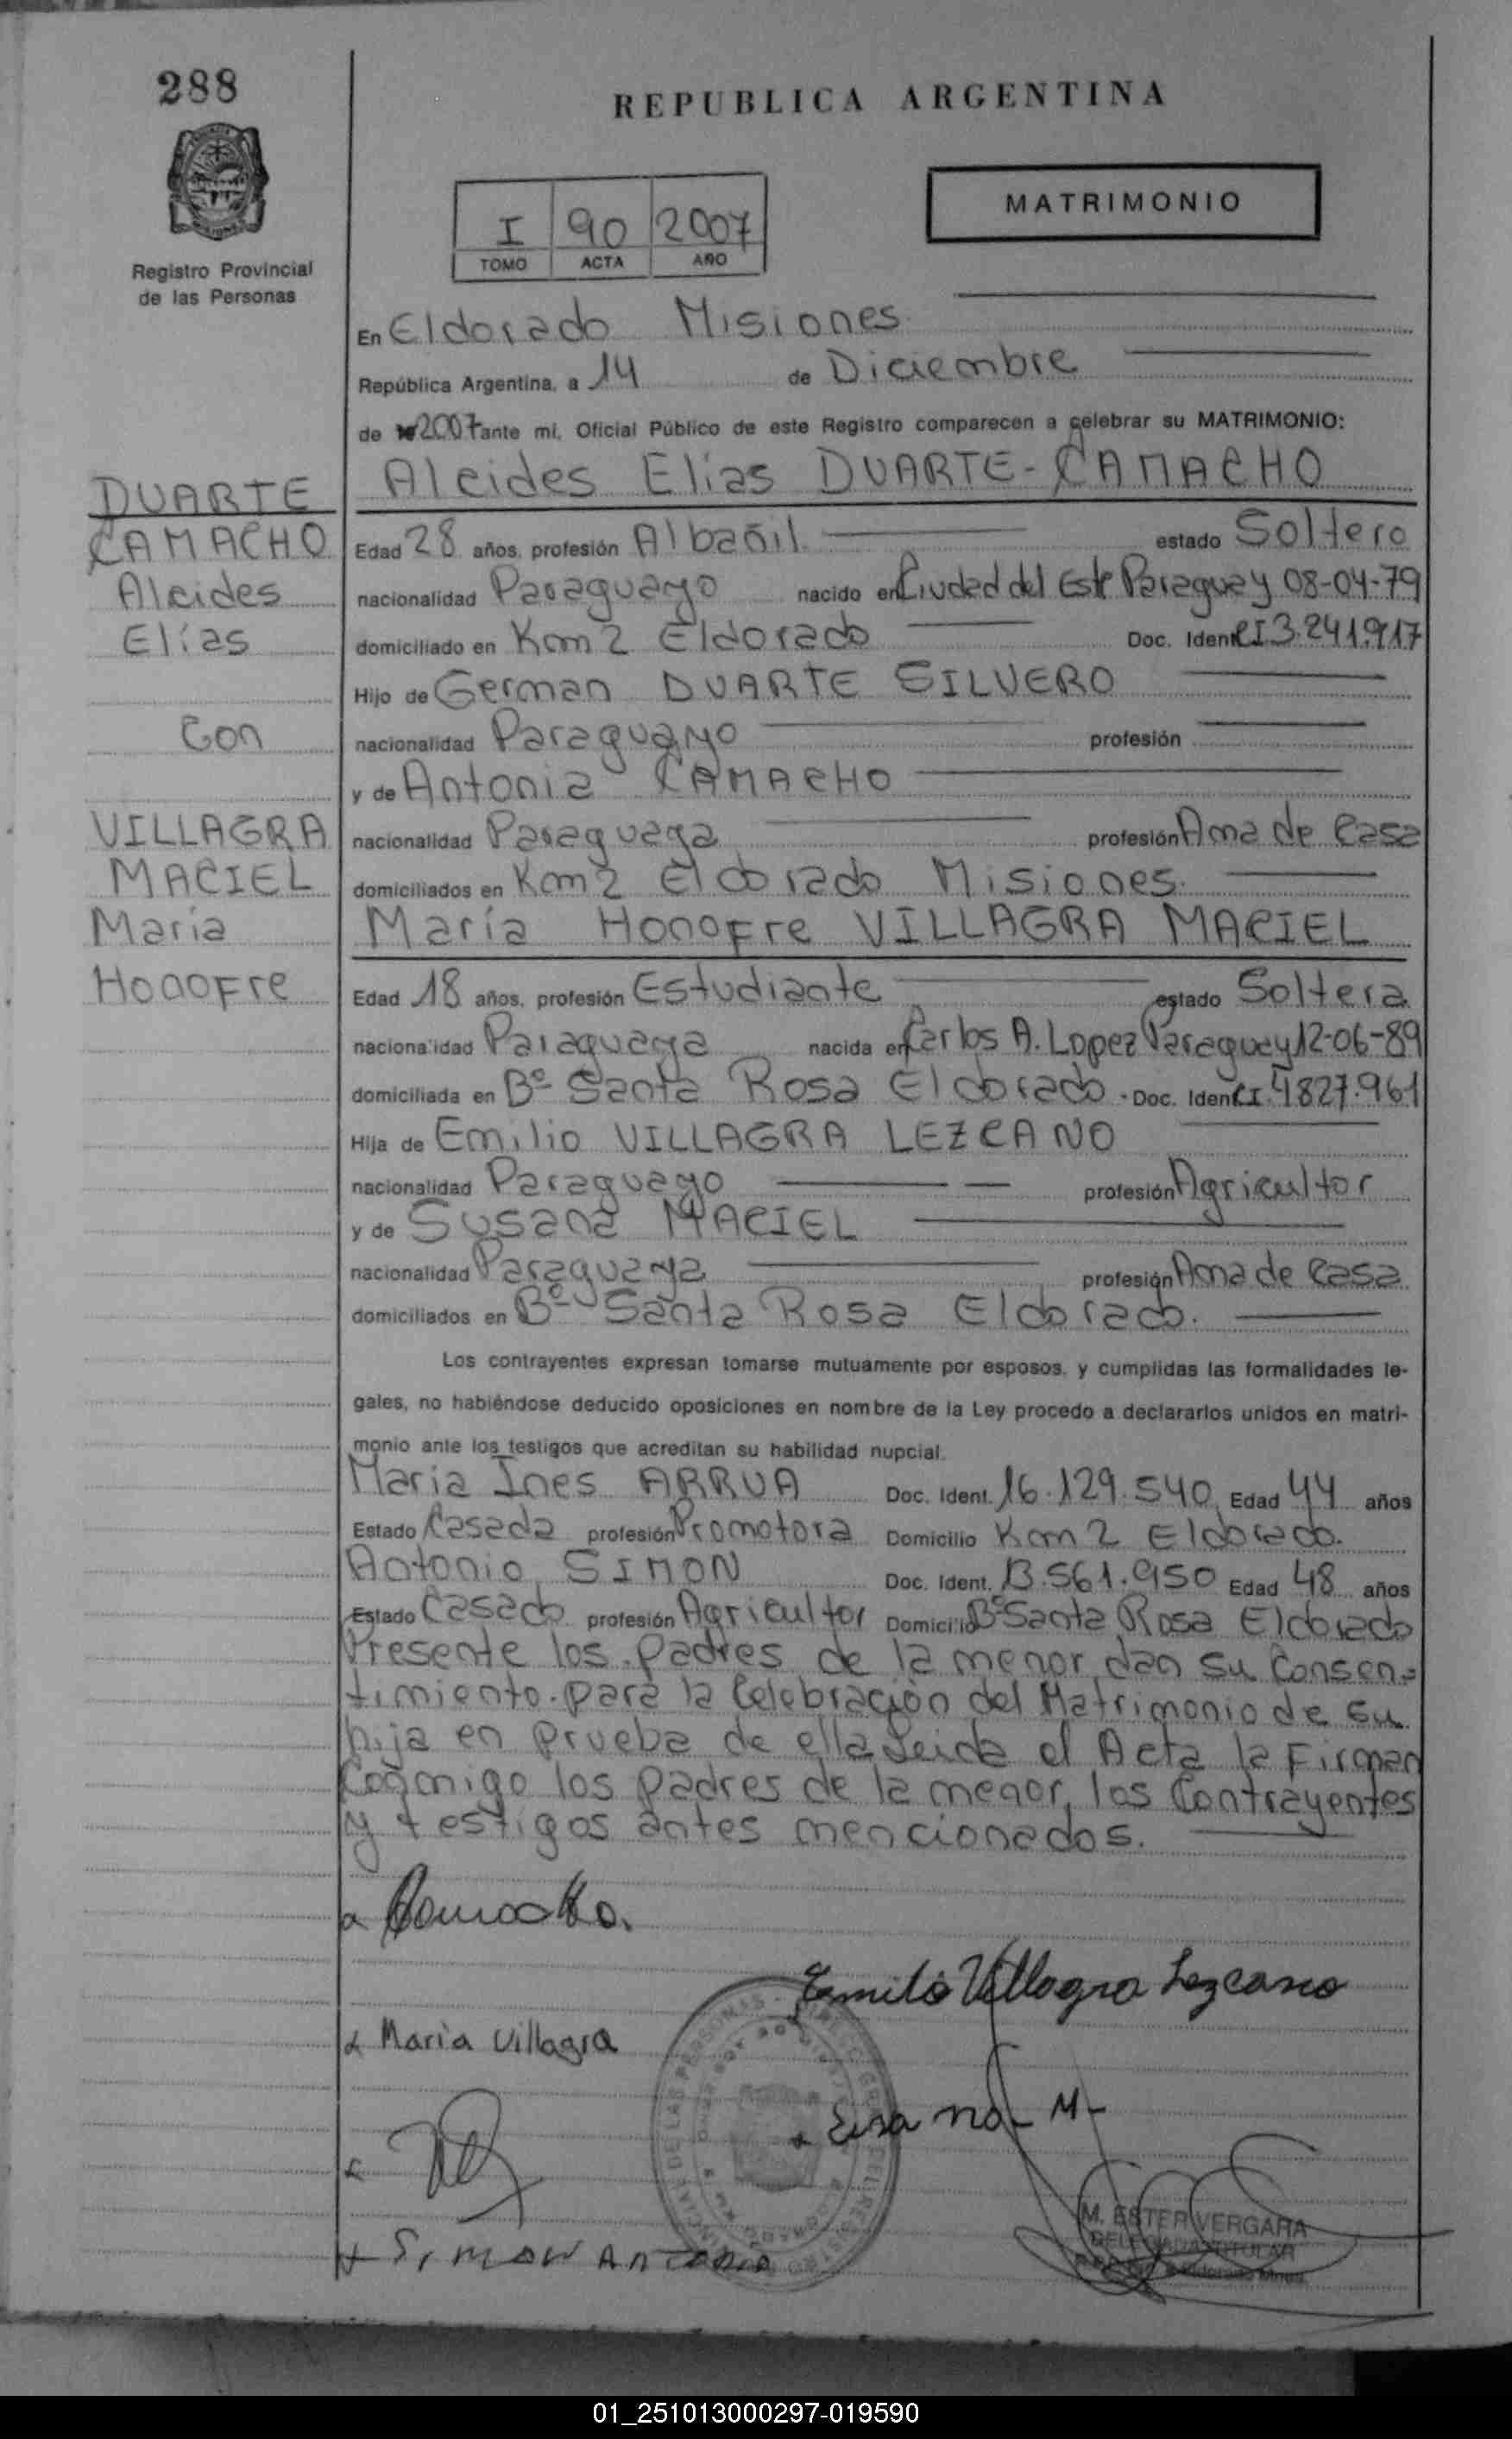 288
REPUBLICA ARGENTINA
MATRIMONIO
I 90 2007
TOMO ACTA AÑO
Registro Provincial
de las Personas
En Eldorado Misiones
República Argentina, a 14 de Diciembre
de 2007 ante mi, Oficial Público de este Registro comparecen a celebrar su MATRIMONIO:
Alcides Elias DUARTE-CAMACHO
DUARTE
CAMACHO
Alcides
Elías
Con
VILLAGRA
MACIEL
María
Honofre
Edad 28 años, profesión Albañil estado Soltero
nacionalidad Paraguayo nacido en Ciudad del Este Paraguay 08-04-79
domiciliado en Km 2 Eldorado Doc. Ident. CI 3.241.917
Hijo de German DUARTE SILVERO
nacionalidad Paraguayo profesión
y de Antonia CAMACHO
nacionalidad Paraguaya profesión Ama de Casa
domiciliados en Km 2 Eldorado Misiones.
María Honofre VILLAGRA MACIEL
Edad 18 años, profesión Estudiante estado Soltera
nacionalidad Paraguaya nacida en Carlos A. Lopez Paraguay 12-06-89
domiciliada en Bº Santa Rosa Eldorado - Doc. Ident. CI. 4827.961
Hija de Emilio VILLAGRA LEZCANO
nacionalidad Paraguayo profesión Agricultor
y de Susana MACIEL
nacionalidad Paraguaya profesión Ama de Casa
domiciliados en Bº Santa Rosa Eldorado.
Los contrayentes expresan tomarse mutuamente por esposos, y cumplidas las formalidades le-
gales, no habiéndose deducido oposiciones en nombre de la Ley procedo a declararlos unidos en matri-
monio ante los testigos que acreditan su habilidad nupcial.
Maria Ines ARRUA Doc. Ident. 16.129.540 Edad 44 años
Estado Casada profesión Promotora Domicilio Km 2 Eldorado.
Antonio SIMON Doc. Ident. 13.561.950 Edad 48 años
Estado Casado profesión Agricultor Domicilio Bº Santa Rosa Eldorado
Presente los padres de la menor dan su Consen-
timiento para la Celebración del Matrimonio de su
hija en prueba de ella Leida el Acta la Firman
Conmigo los padres de la menor, los Contrayentes
y testigos antes mencionados.
Emilio Villagra Lezcano
Maria Villagra
M-
SIMON ANTONIO
M. ESTER VERGARA
DELEGADA TITULAR
01_251013000297-019590